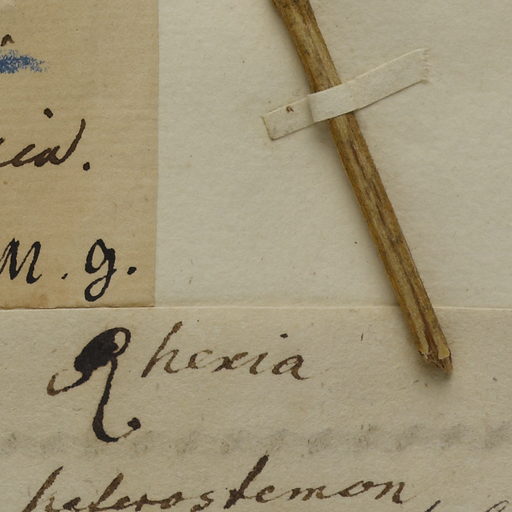 M. g.
Rhexia
heterostemon